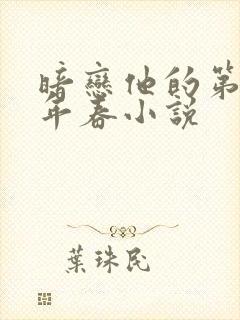 暗戀他的第
年春小説
葉珠民